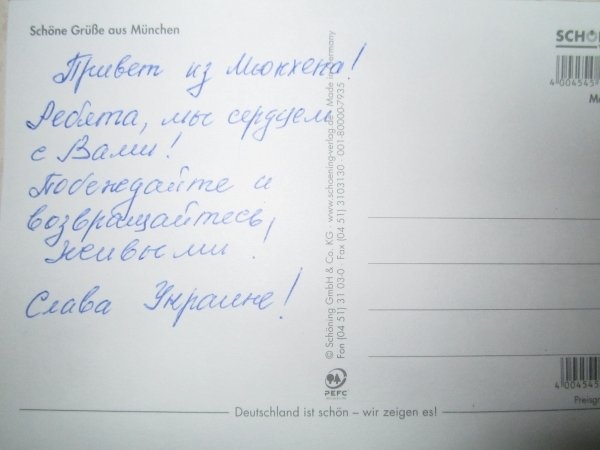 Schöne Grüße aus München
Привет из Мюнхена!
Ребята, мы сердцем
с Вами!
Побеждайте и
возвращайтесь
живыми!
Слава Украине!
© Schöning GmbH & Co. KG · www.schoening-verlag.de · Made in Germany
Fon (04 51) 31 03-0 · Fax (04 51) 3103130 · 001-80000-7935
PEFC
SCHÖN
4 004545
4 004545
Preisgr
Deutschland ist schön – wir zeigen es!